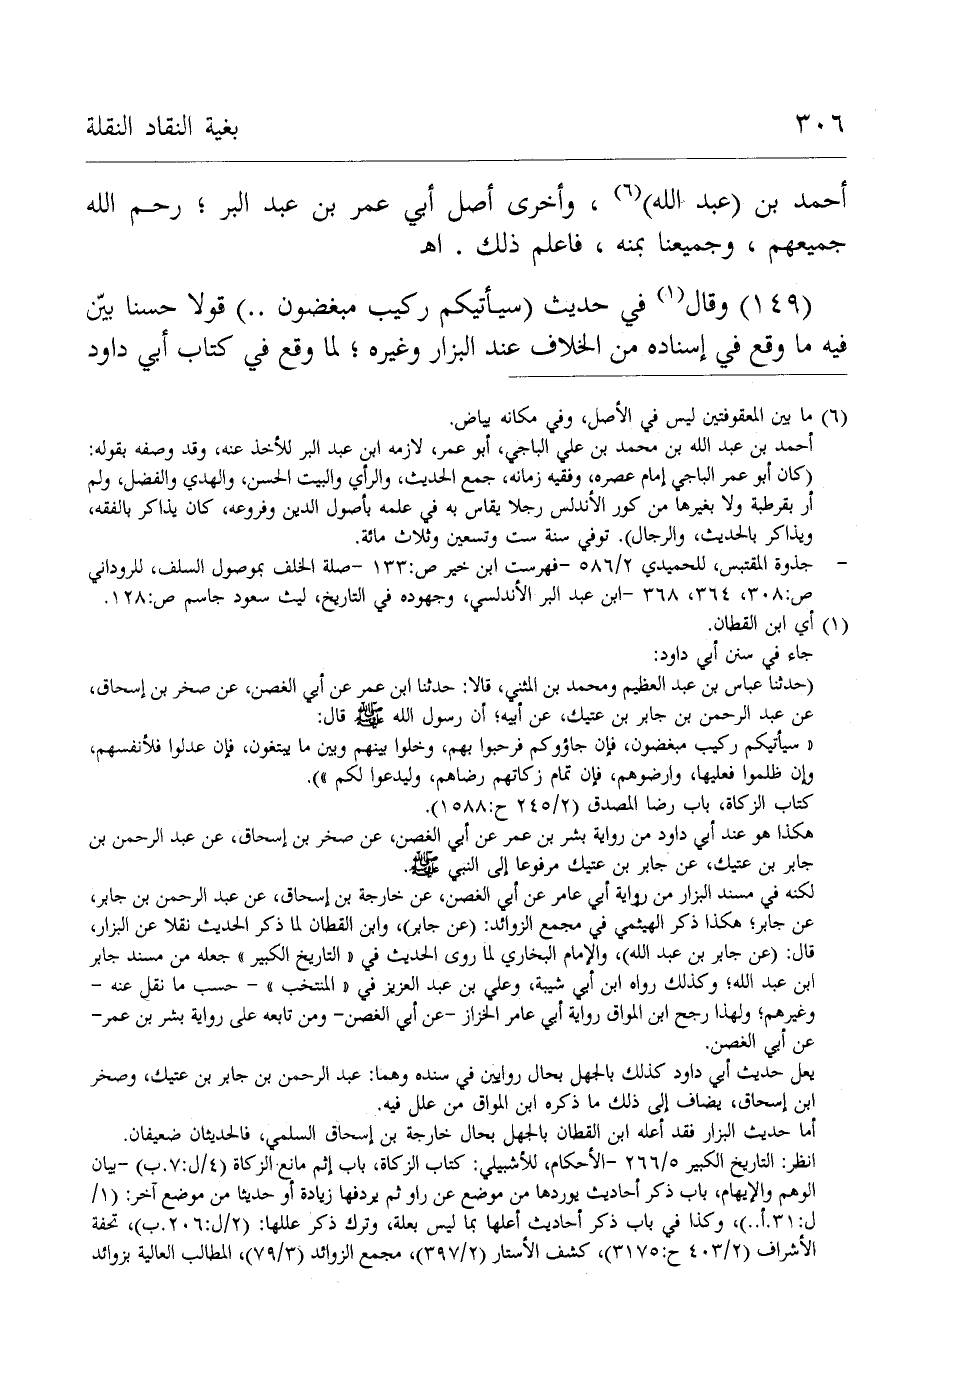 ٣٠٦ بغية النقاد النقلة
أحمد بن (عبد الله)(٦) ، وأخرى أصل أبي عمر بن عبد البر ؛ رحم الله
جميعهم ، وجميعنا بمنه ، فاعلم ذلك . اهـ
(١٤٩) وقال(١) في حديث (سيأتيكم ركيب مبغضون ..) قولا حسنا بيّن
فيه ما وقع في إسناده من الخلاف عند البزار وغيره ؛ لما وقع في كتاب أبي داود
(٦) ما بين المعقوفتين ليس في الأصل، وفي مكانه بياض.
أحمد بن عبد الله بن محمد بن علي الباجي، أبو عمر، لازمه ابن عبد البر للأخذ عنه، وقد وصفه بقوله:
(كان أبو عمر الباجي إمام عصره، وفقيه زمانه، جمع الحديث، والرأي والبيت الحسن، والهدي والفضل، ولم
أر بقرطبة ولا بغيرها من كور الأندلس رجلا يقاس به في علمه بأصول الدين وفروعه، كان يذاكر بالفقه،
ويذاكر بالحديث، والرجال). توفي سنة ست وتسعين وثلاث مائة.
- جذوة المقتبس، للحميدي ٥٨٦/٢ -فهرست ابن خير ص:١٣٣ -صلة الخلف بموصول السلف، للروداني
ص:٣٠٨، ٣٦٤، ٣٦٨ -ابن عبد البر الأندلسي، وجهوده في التاريخ، ليث سعود جاسم ص:١٢٨.
(١) أي ابن القطان.
جاء في سنن أبي داود:
(حدثنا عباس بن عبد العظيم ومحمد بن المثني، قالا: حدثنا ابن عمر عن أبي الغصن، عن صخر بن إسحاق،
عن عبد الرحمن بن جابر بن عتيك، عن أبيه؛ أن رسول الله ﷺ قال:
« سيأتيكم ركيب مبغضون، فإن جاؤوكم فرحبوا بهم، وخلوا بينهم وبين ما يبتغون، فإن عدلوا فلأنفسهم،
وإن ظلموا فعليها، وارضوهم، فإن تمام زكاتهم رضاهم، وليدعوا لكم »).
كتاب الزكاة، باب رضا المصدق (٢٤٥/٢ ح:١٥٨٨).
هكذا هو عند أبي داود من رواية بشر بن عمر عن أبي الغصن، عن صخر بن إسحاق، عن عبد الرحمن بن
جابر بن عتيك، عن جابر بن عتيك مرفوعا إلى النبي ﷺ.
لكنه في مسند البزار من رواية أبي عامر عن أبي الغصن، عن خارجة بن إسحاق، عن عبد الرحمن بن جابر،
عن جابر؛ هكذا ذكر الهيثمي في مجمع الزوائد: (عن جابر)، وابن القطان لما ذكر الحديث نقلا عن البزار،
قال: (عن جابر بن عبد الله)، والإمام البخاري لما روى الحديث في « التاريخ الكبير » جعله من مسند جابر
ابن عبد الله؛ وكذلك رواه ابن أبي شيبة، وعلي بن عبد العزيز في « المنتخب » - حسب ما نقل عنه -
وغيرهم؛ ولهذا رجح ابن المواق رواية أبي عامر الخزاز -عن أبي الغصن- ومن تابعه على رواية بشر بن عمر-
عن أبي الغصن.
يعل حديث أبي داود كذلك بالجهل بحال روايين في سنده وهما: عبد الرحمن بن جابر بن عتيك، وصخر
ابن إسحاق، يضاف إلى ذلك ما ذكره ابن المواق من علل فيه.
أما حديث البزار فقد أعله ابن القطان بالجهل بحال خارجة بن إسحاق السلمي، فالحديثان ضعيفان.
انظر: التاريخ الكبير ٢٦٦/٥ -الأحكام، للأشبيلي: كتاب الزكاة، باب إثم مانع الزكاة (٤/ل:٧.ب) -بيان
الوهم والإيهام، باب ذكر أحاديث يوردها من موضع عن راو ثم يردفها زيادة أو حديثا من موضع آخر: (١/
ل:٣١.أ..)، وكذا في باب ذكر أحاديث أعلها بما ليس بعلة، وترك ذكر عللها: (٢/ل:٢٠٦.ب)، تحفة
الأشراف (٤٠٣/٢ ح:٣١٧٥)، كشف الأستار (٣٩٧/٢)، مجمع الزوائد (٧٩/٣)، المطالب العالية بزوائد